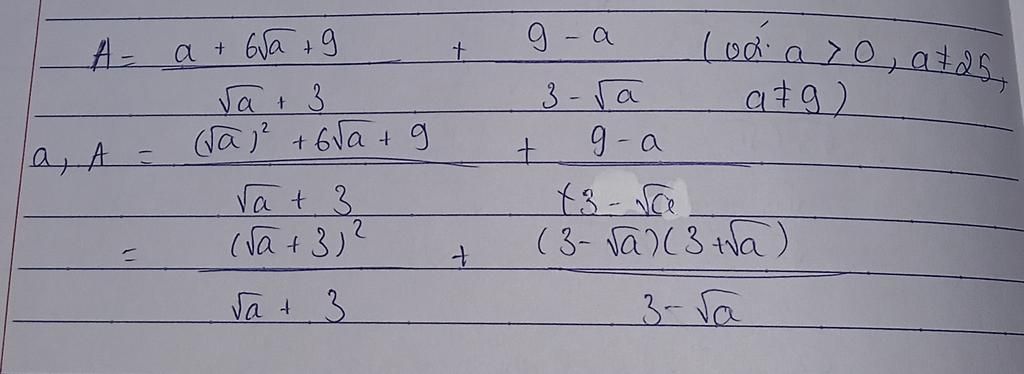 A = (a + 6√a + 9)/(√a + 3) + (9 - a)/(3 - √a) (với a > 0, a ≠ 25,
a ≠ 9)
a, A = ((√a)² + 6√a + 9)/(√a + 3) + (9 - a)/(3 - √a)
= (√a + 3)²/(√a + 3) + (3 - √a)(3 + √a)/(3 - √a)